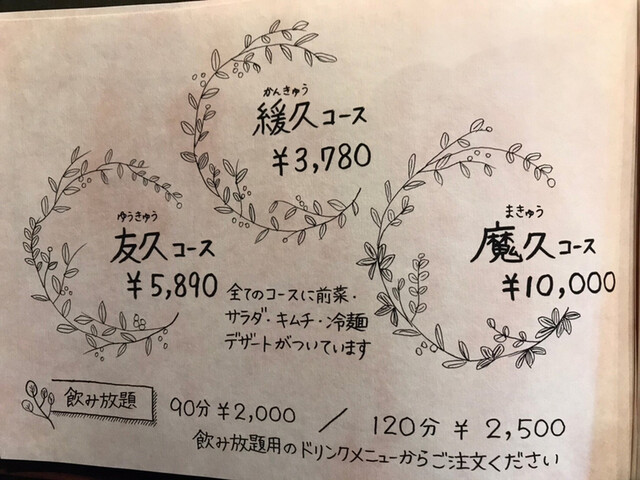 かんきゅう
緩久コース
¥3,780
ゆうきゅう
友久コース
¥5,890
まきゅう
魔久コース
¥10,000
全てのコースに前菜・
サラダ・キムチ・冷麺
デザートがついています
飲み放題
90分¥2,000 / 120分 ¥ 2,500
飲み放題用のドリンクメニューからご注文ください